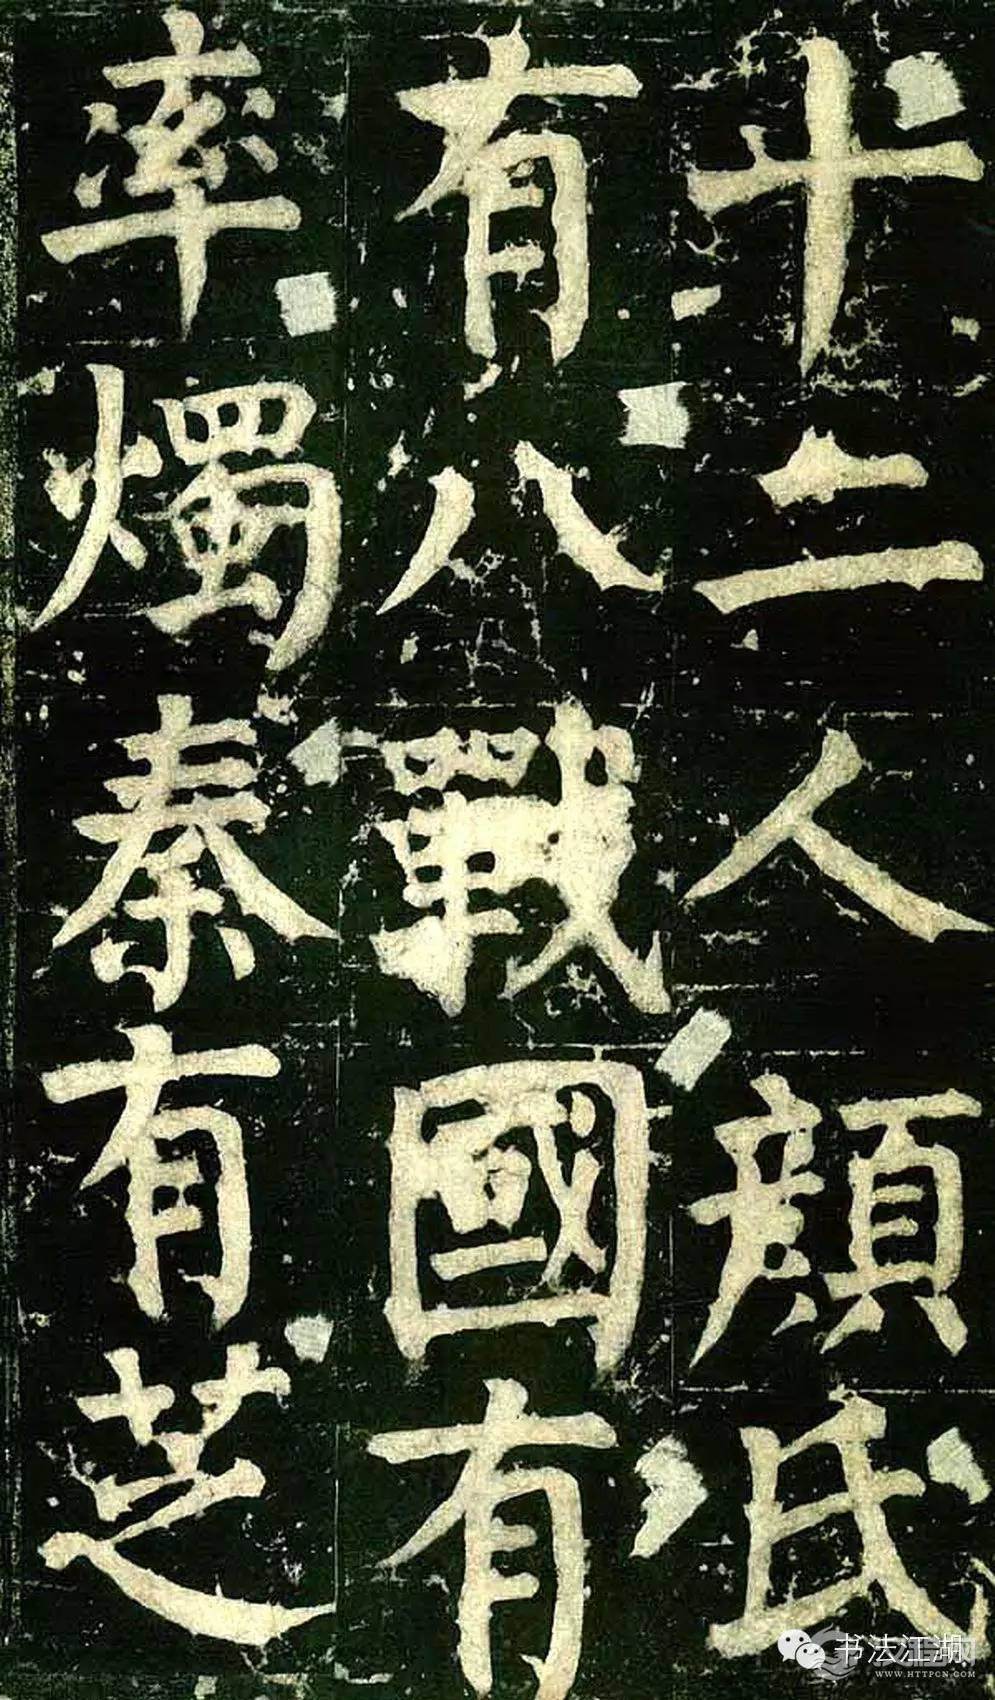 十二人顏氏
有八戰國有
率燭秦有芝
书法江湖
WWW.HTTPCN.COM